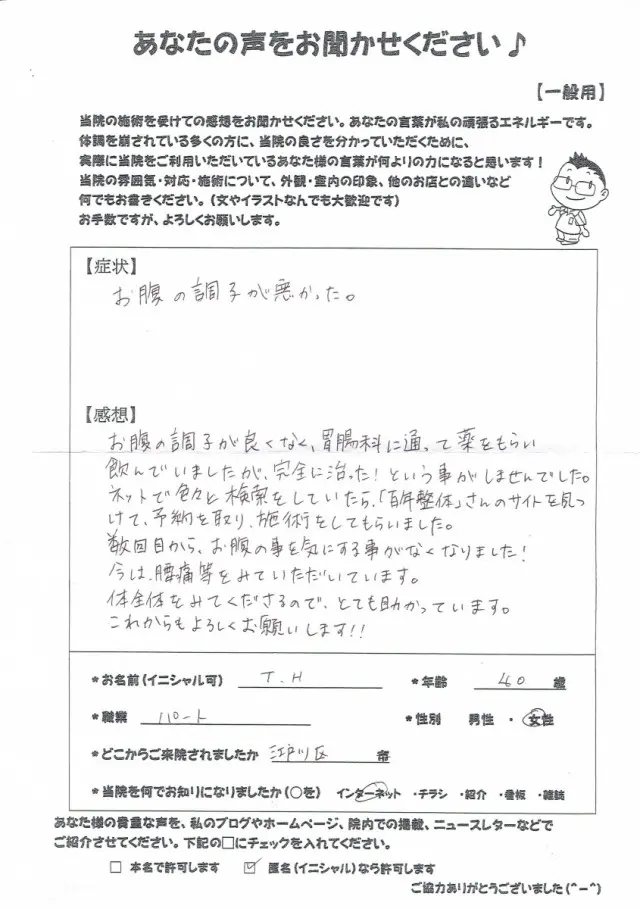 あなたの声をお聞かせください♪
【一般用】
当院の施術を受けての感想をお聞かせください。あなたの言葉が私の頑張るエネルギーです。
体調を崩されている多くの方に、当院の良さを分かっていただくために、
実際に当院をご利用いただいているあなた様の言葉が何よりの力になると思います！
当院の雰囲気・対応・施術について、外観・室内の印象、他のお店との違いなど
何でもお書きください。（文やイラストなんでも大歓迎です）
お手数ですが、よろしくお願いします。
【症状】
お腹の調子が悪かった。
【感想】
お腹の調子が良くなく、胃腸科に通って薬をもらい
飲んでいましたが、完全に治った！という事がしませんでした。
ネットで色々と検索をしていたら、「百年整体」さんのサイトを見つ
けて、予約を取り、施術をしてもらいました。
数回目から、お腹の事を気にする事がなくなりました！
今は、腰痛等をみていただいています。
体全体をみてくださるので、とても助かっています。
これからもよろしくお願いします！！
*お名前（イニシャル可） T.H *年齢 40 歳
*職業 パート *性別 男性・女性
*どこからご来院されましたか 江戸川区 市
*当院を何でお知りになりましたか（○を） インターネット ・チラシ ・紹介 ・看板 ・雑誌
あなた様の貴重な声を、私のブログやホームページ、院内での掲載、ニュースレターなどで
ご紹介させてください。下記の□にチェックを入れてください。
□ 本名で許可します ☑ 匿名（イニシャル）なら許可します
ご協力ありがとうございました(^-^)